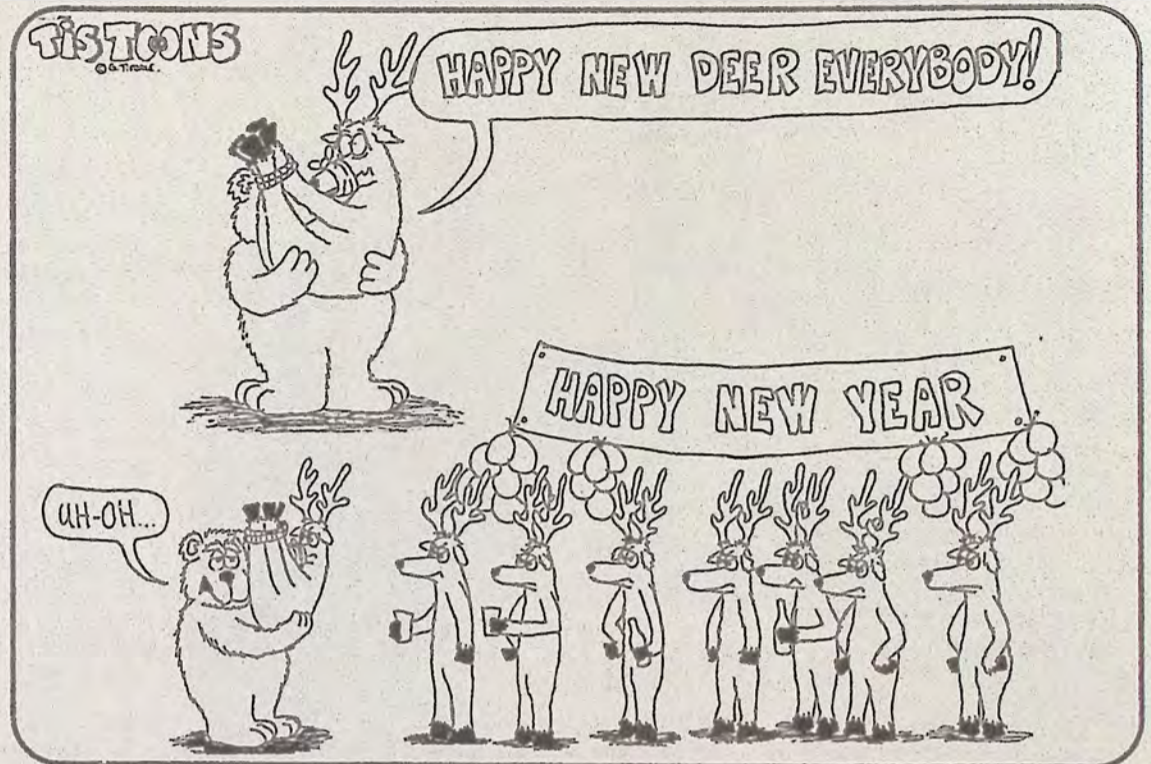 TiSTOONS
HAPPY NEW DEER EVERYBODY!
HAPPY NEW YEAR
UH-OH...